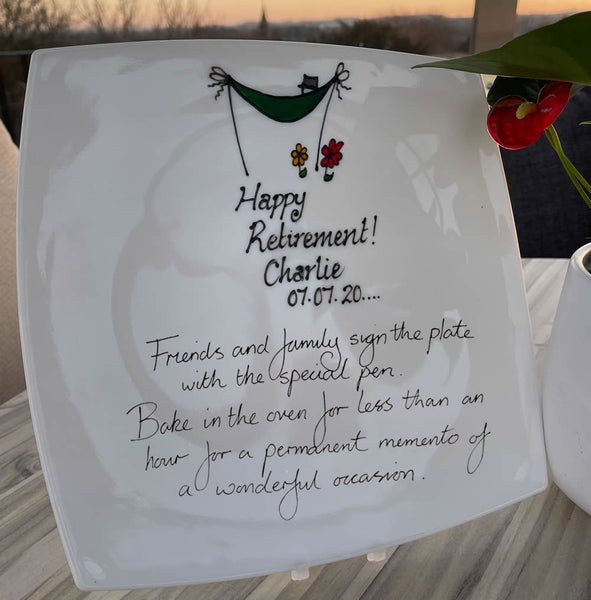 Happy
Retirement!
Charlie
07.07.20....
Friends and family sign the plate
with the special pen.
Bake in the oven for less than an
hour for a permanent memento of
a wonderful occasion.